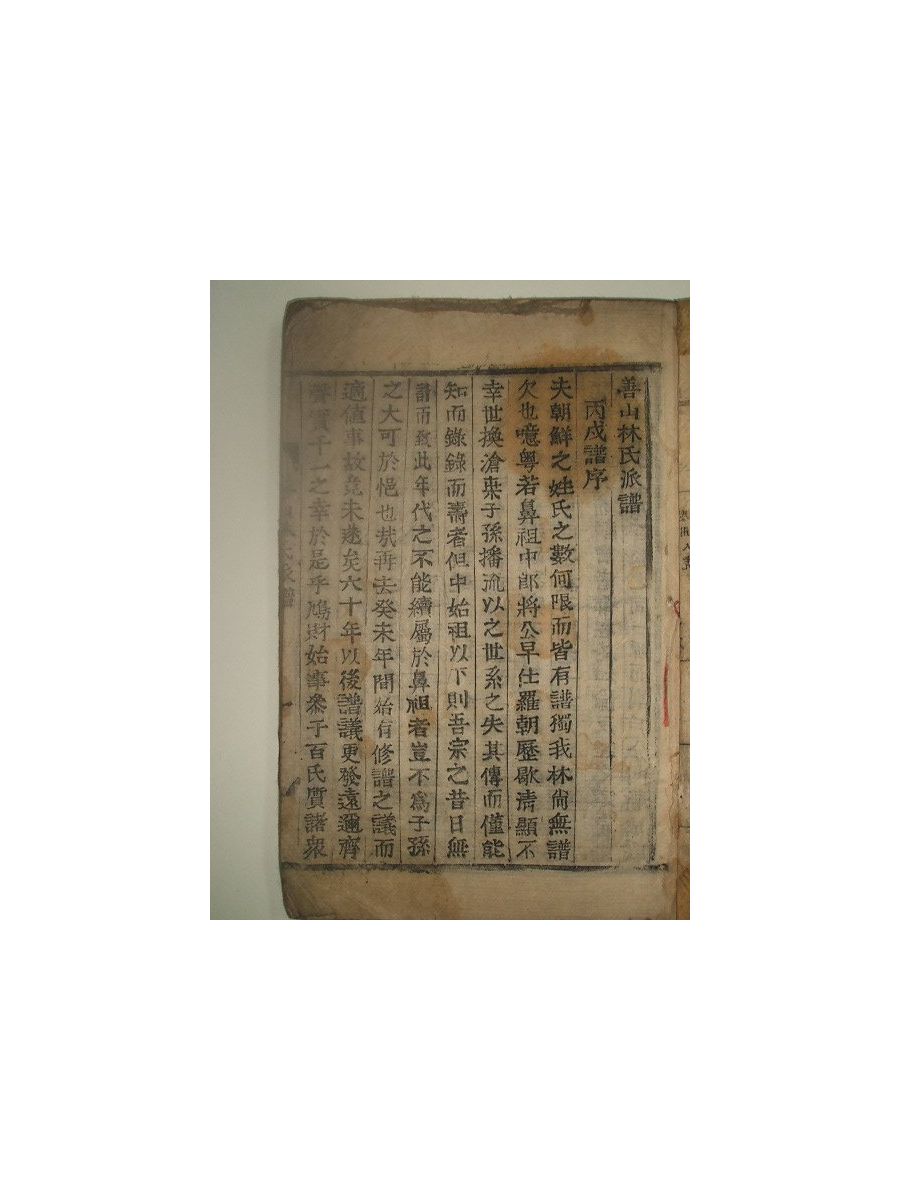 善山林氏派譜
丙戌譜序
夫朝鮮之姓氏之數何限而皆有譜獨我林尙無譜
欠也噫粤若鼻祖中郎將公早仕羅朝歷歇淸顯不
幸世換滄桒子孫播流以之世系之失其傳而僅能
知而錄錄而壽者但中始祖以下則吾宗之昔日無
譜而致此年代之不能續屬於鼻祖者豈不爲子孫
之大可於悒也哉再去癸未年間始有修譜之議而
適値事故竟未遂矣六十年以後譜議更發遠邇齊
聲實千一之幸於是乎鳩財始事叅于百氏質諸衆
氏派譜